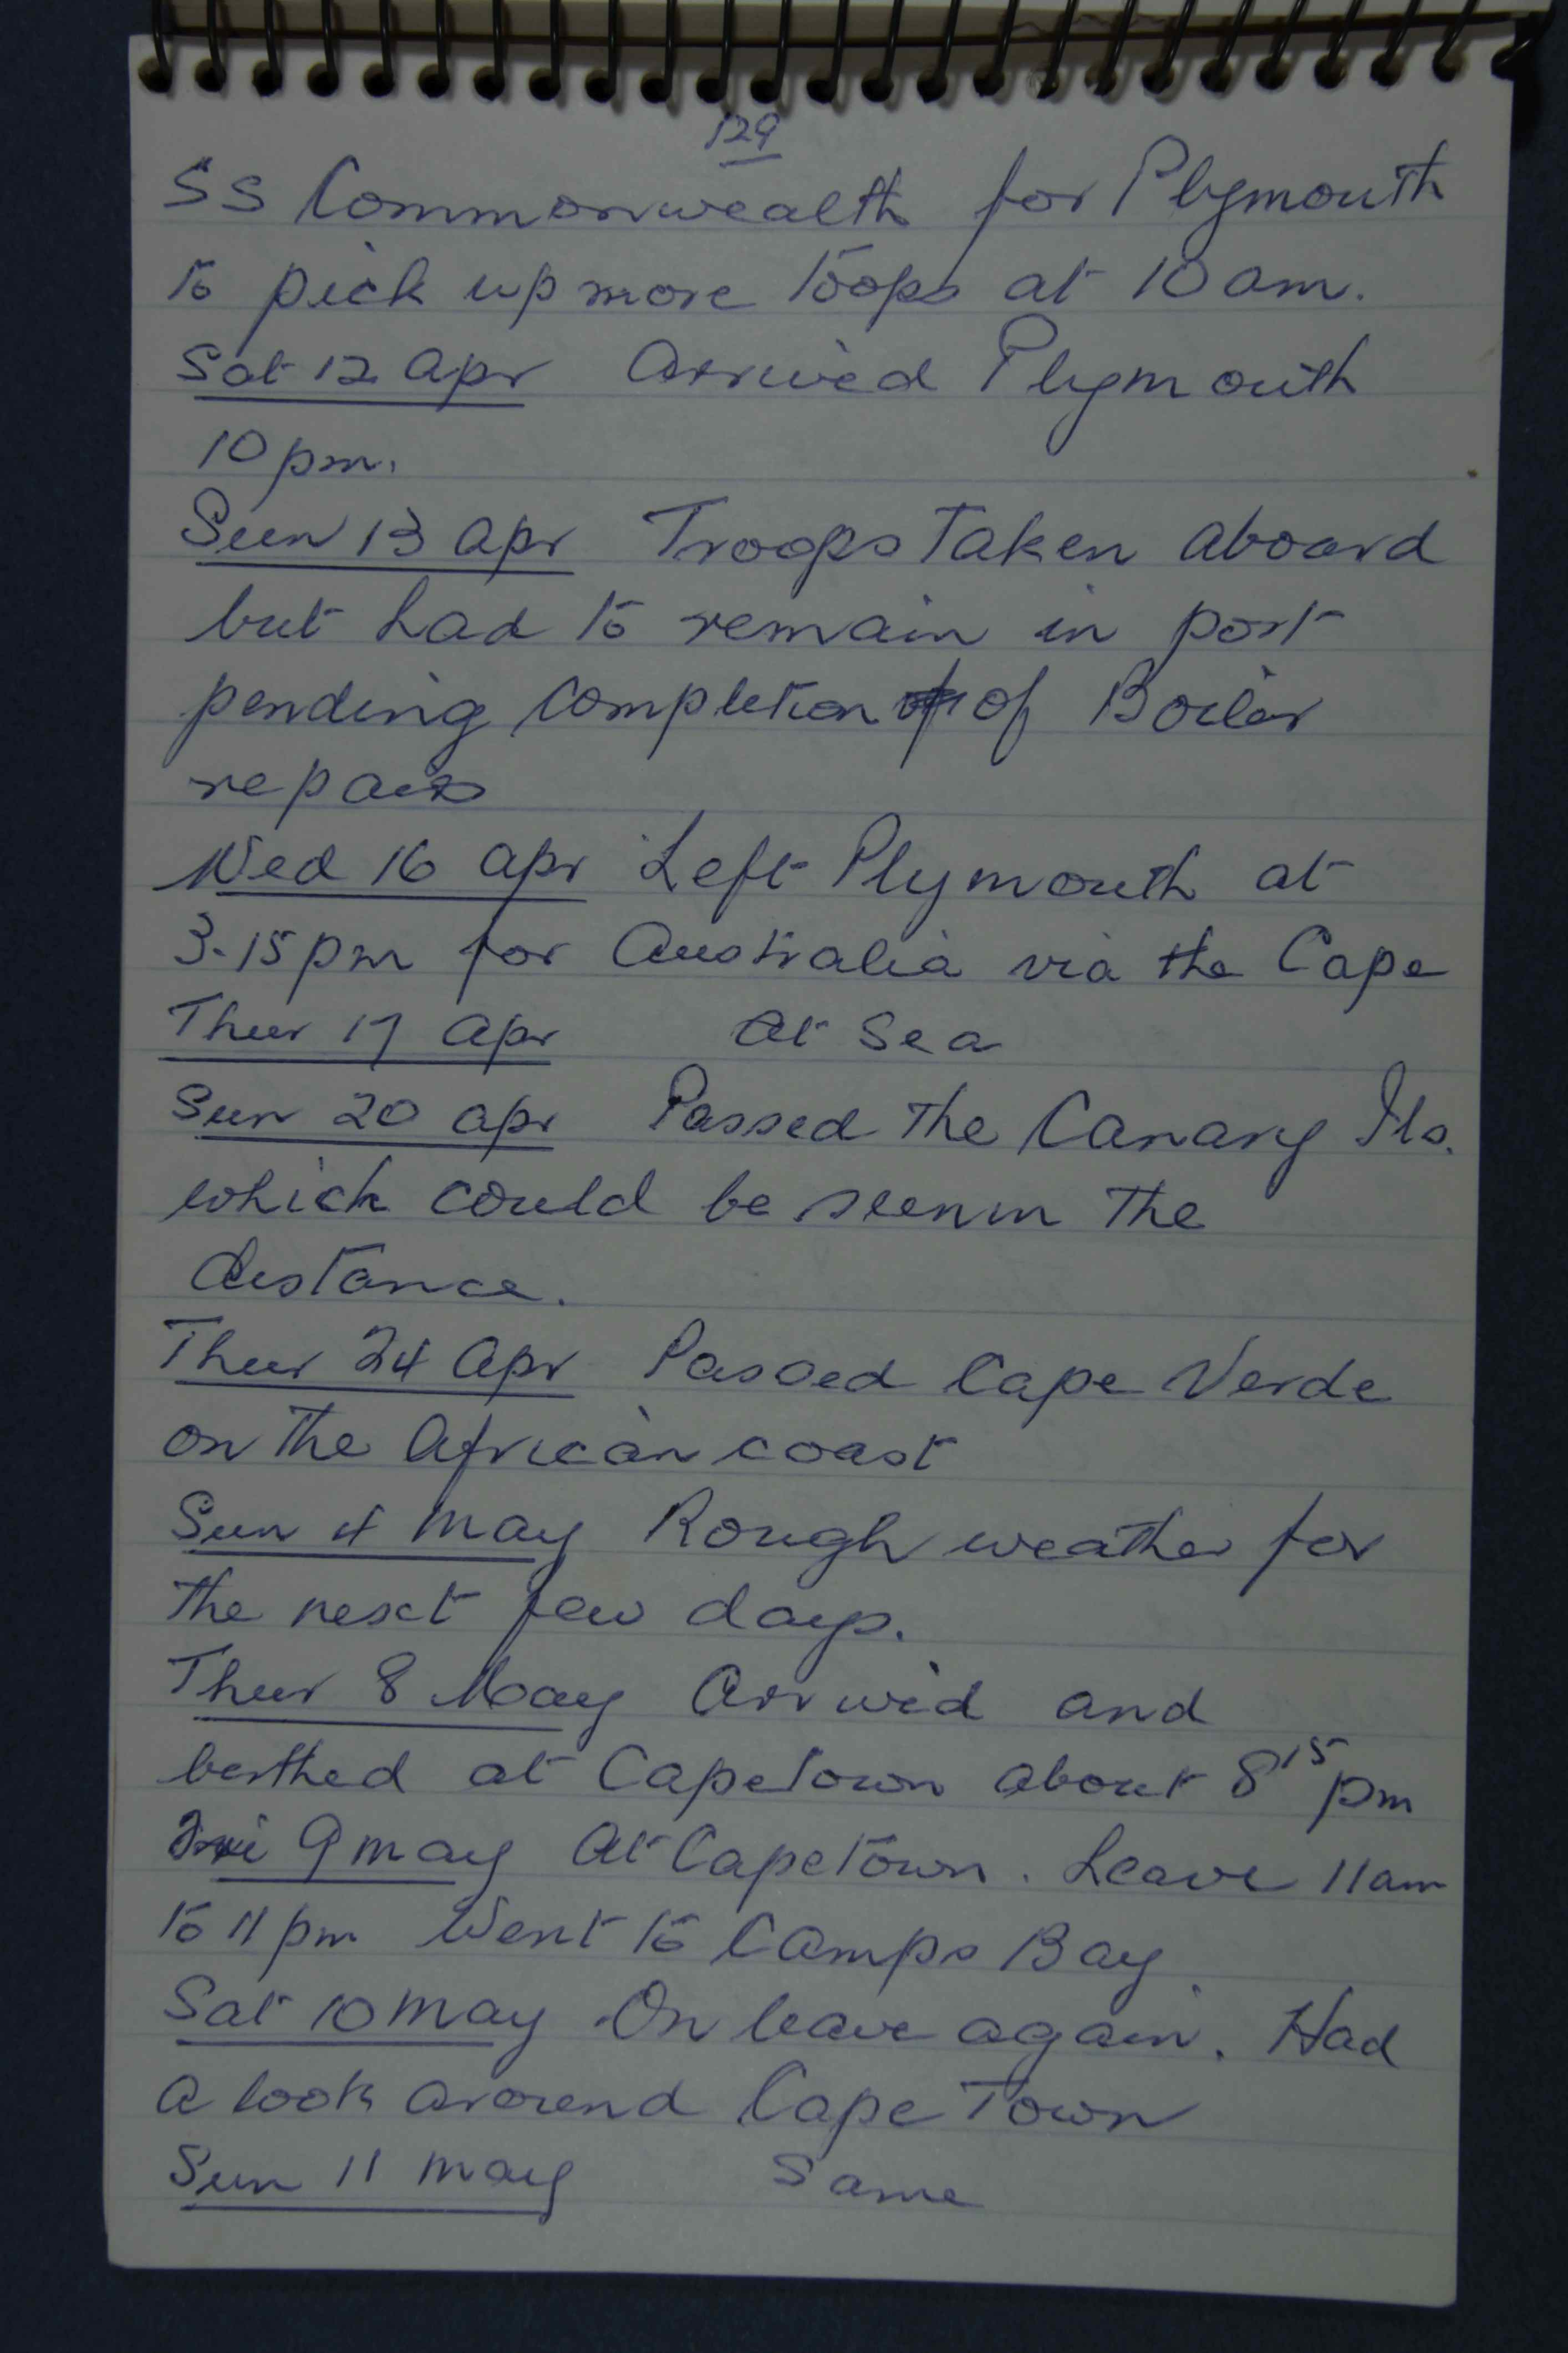 129
SS Commonwealth for Plymouth
to pick up more toops at 10 am.
Sat 12 Apr Arrived Plymouth
10 pm.
Sun 13 Apr Troops Taken aboard
but had to remain in port
pending completion of Boiler
repairs
Wed 16 Apr Left Plymouth at
3.15 pm for Australia via the Cape
Thur 17 Apr At Sea
Sun 20 Apr Passed The Canary Ils.
which could be seen in The
distance.
Thur 24 Apr Passed Cape Verde
on The African coast
Sun 4 May Rough weather for
The next few days.
Thur 8 May Arrived and
berthed at Capetown about 8 15 pm
Fri 9 May At Capetown. Leave 11 am
to 11 pm Went to Camps Bay.
Sat 10 May On leave again. Had
a look around Cape Town
Sun 11 May Same